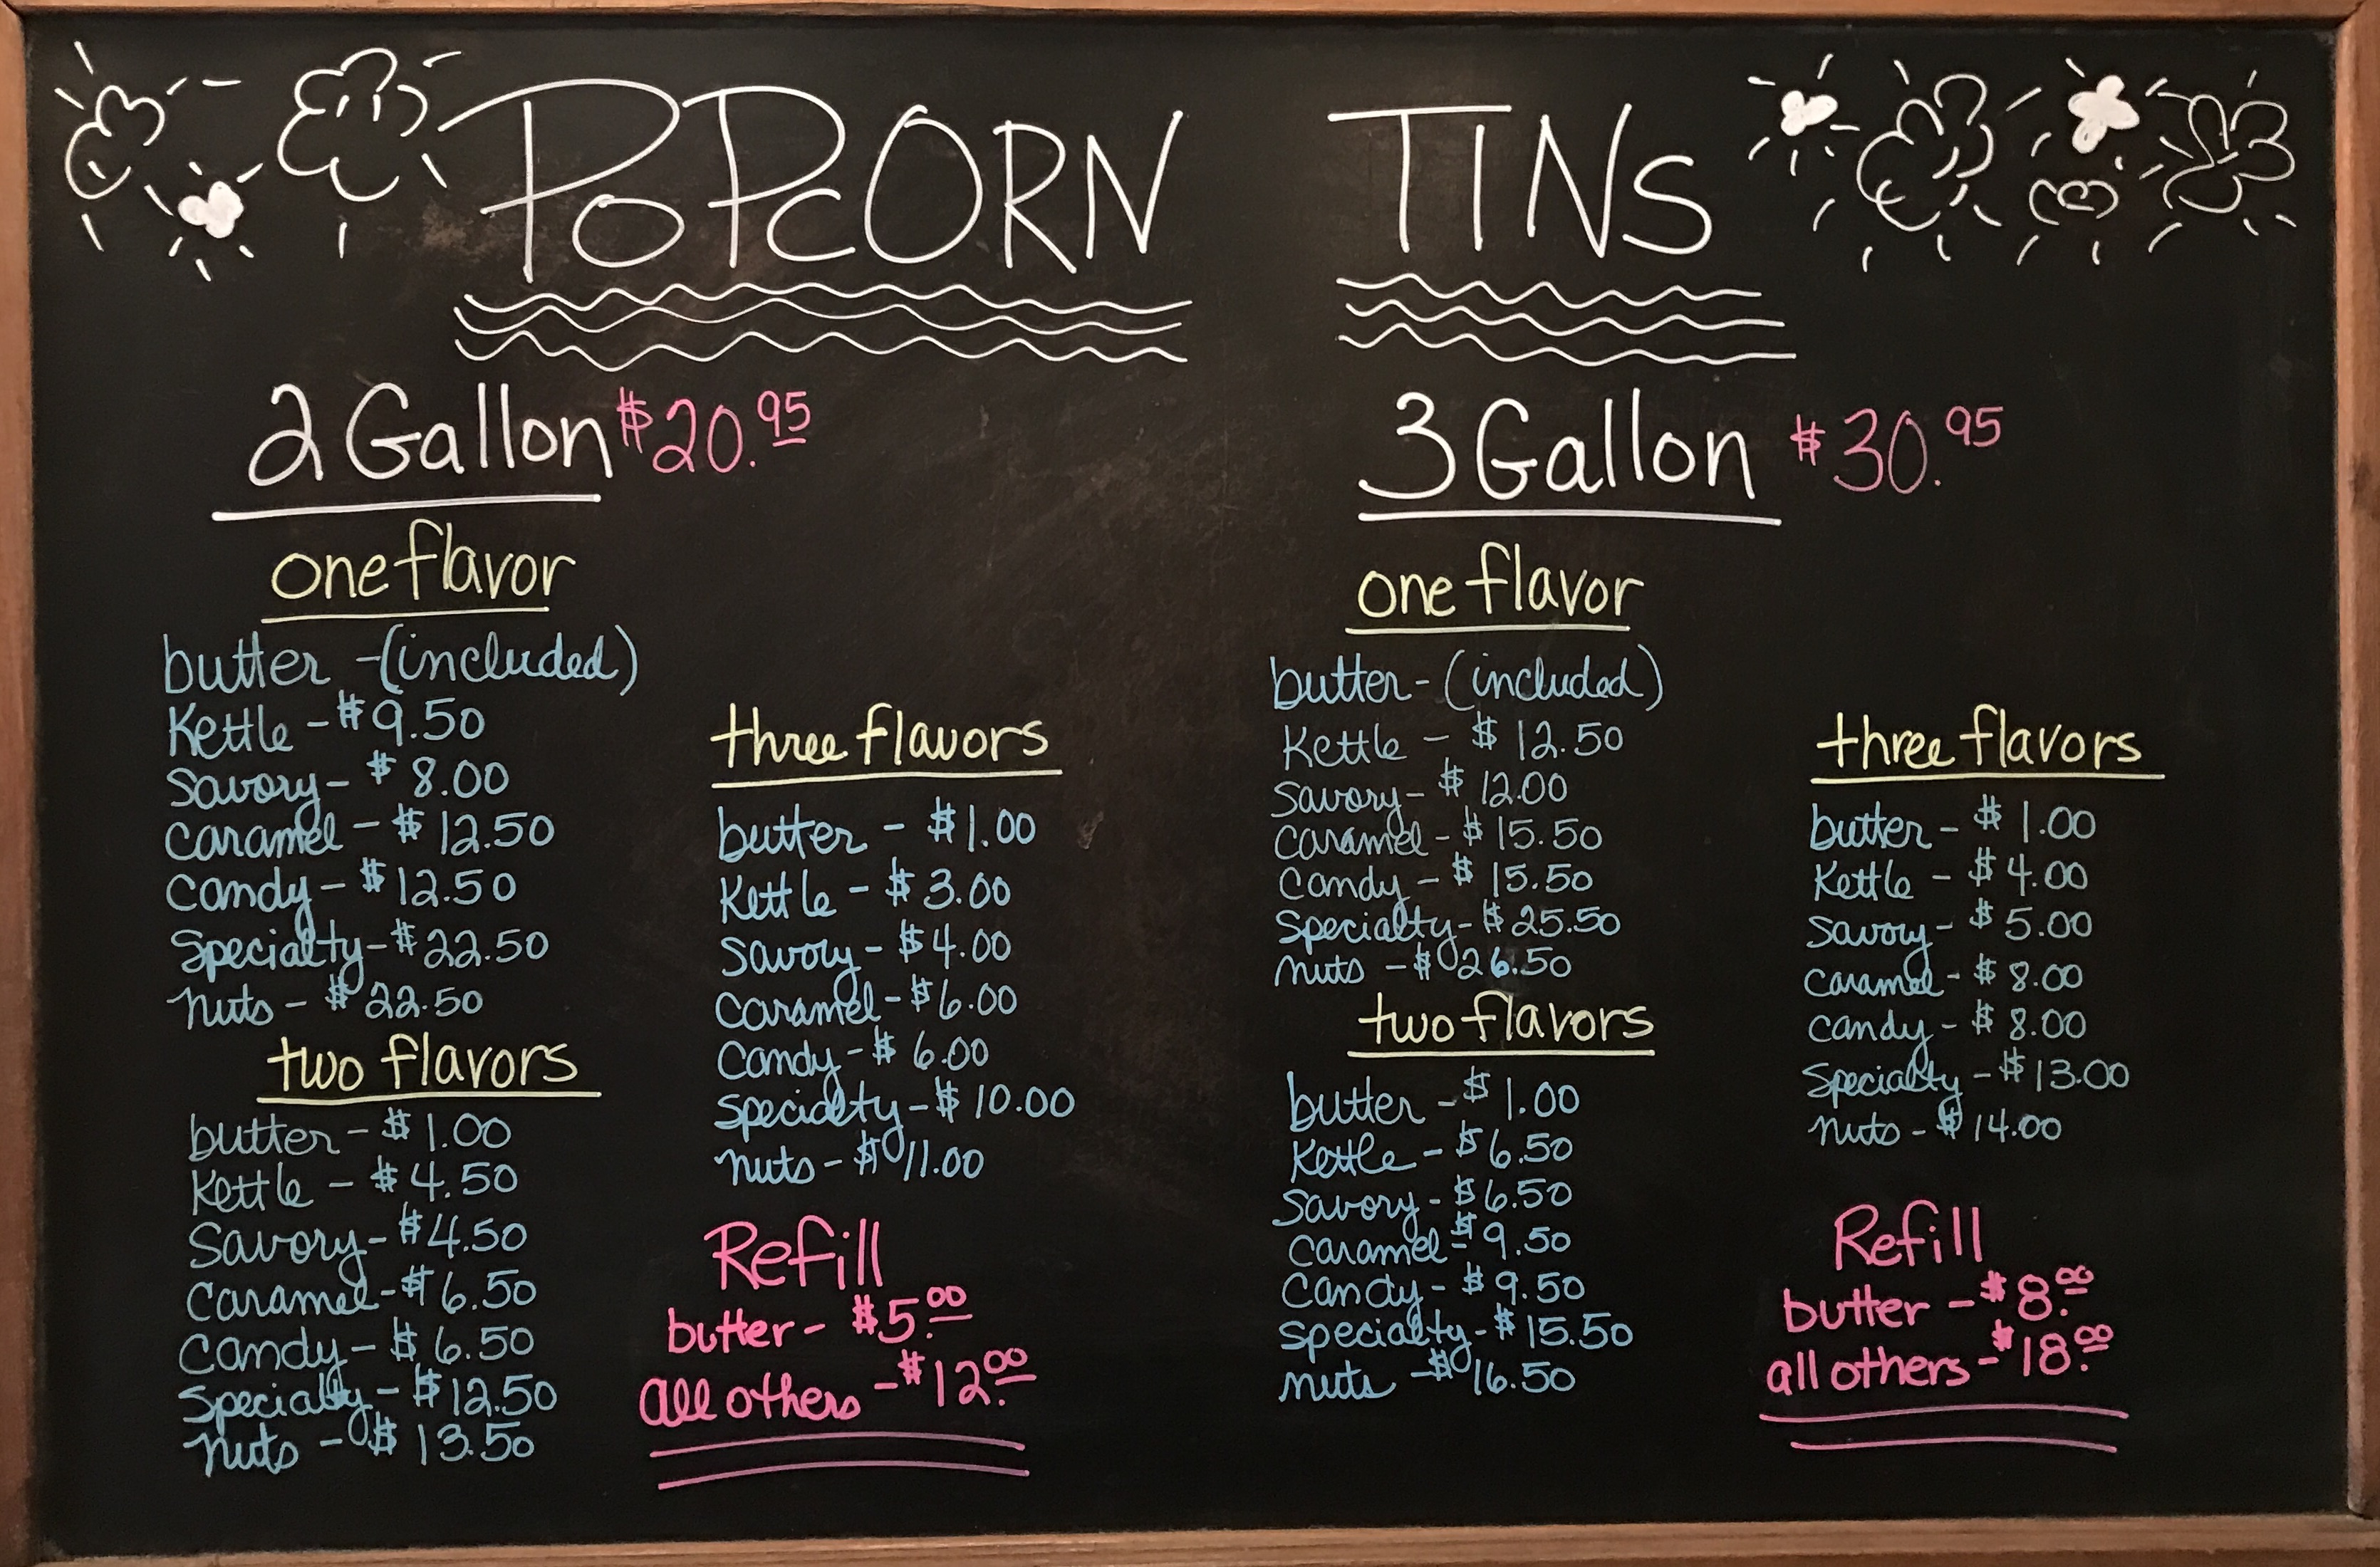 POPCORN TINS
2 Gallon $20.95
one flavor
butter - (included)
Kettle - $9.50
Savory - $8.00
Caramel - $12.50
Candy - $12.50
Specialty - $22.50
nuts - $22.50
two flavors
butter - $1.00
Kettle - $4.50
Savory - $4.50
Caramel - $6.50
Candy - $6.50
Specialty - $12.50
nuts - $13.50
three flavors
butter - $1.00
Kettle - $3.00
Savory - $4.00
Caramel - $6.00
Candy - $6.00
Specialty - $10.00
nuts - $11.00
Refill
butter - $5.00
all others - $12.00
3 Gallon $30.95
one flavor
butter - (included)
Kettle - $12.50
Savory - $12.00
Caramel - $15.50
Candy - $15.50
Specialty - $25.50
nuts - $26.50
two flavors
butter - $1.00
Kettle - $6.50
Savory - $6.50
Caramel - $9.50
Candy - $9.50
Specialty - $15.50
nuts - $16.50
three flavors
butter - $1.00
Kettle - $4.00
Savory - $5.00
Caramel - $8.00
Candy - $8.00
Specialty - $13.00
nuts - $14.00
Refill
butter - $8.00
all others - $18.00